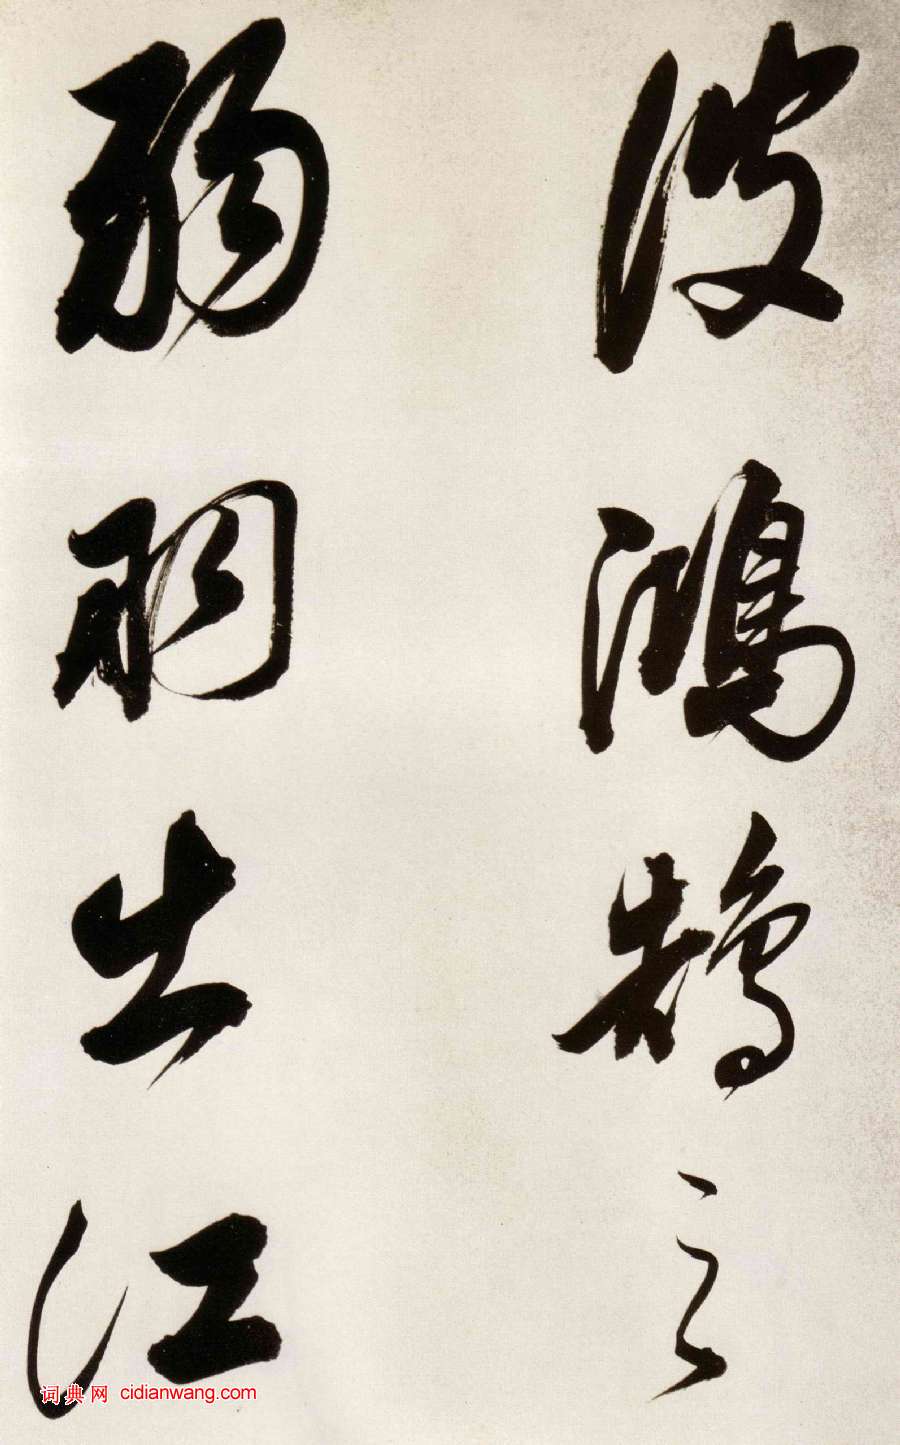 波鴻鵠之
弱羽出江
词典网 cidianwang.com